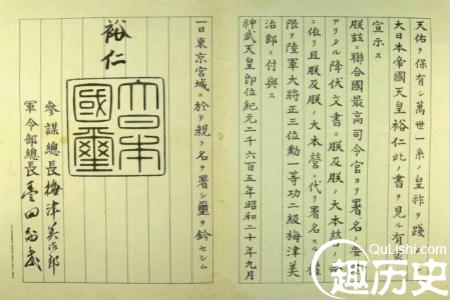 天佑ヲ保有シ萬世一系ノ皇祚ヲ踐
大日本帝國天皇裕仁此ノ書ヲ見ル有
宣示ス
朕茲ニ聯合國最高司令官ヨリ署名ノ要
アリタル降伏文書ニ朕及朕ノ大本營
ニ依リ且朕及朕ノ大本營ニ代リ署名ス
限ヲ陸軍大將正三位勳一等功二級梅津美
治郎ニ付與ス
神武天皇即位紀元二千六百五年昭和二十年九月
一日東京宮城ニ於テ親ラ名ヲ署シ璽ヲ鈐セシム
裕仁
大日本國璽
參謀總長 梅津美治郎
軍令部總長 豊田副武
QuLishi.com
趣历史